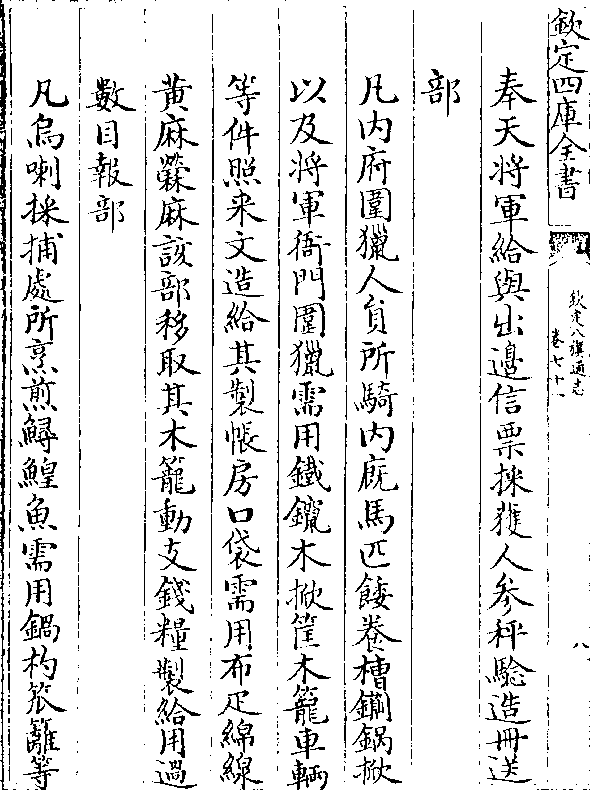 欽定四庫全書
欽定八旗通志
卷七十一
八
奉天將軍給與出邊信票採獲人參秤驗造冊送
部
凡內府圍獵人員所騎內廐馬匹餧養槽鍘鍋掀
以及將軍衙門圍獵需用鐵鑞木掀筐木籠車輛
等件照来文造給其製帳房口袋需用布疋綿線
黄麻檾麻該部移取其木籠動支錢糧製給用過
數目報部
凡烏喇採捕處所烹煎鱘鰉魚需用鍋杓笊籬等